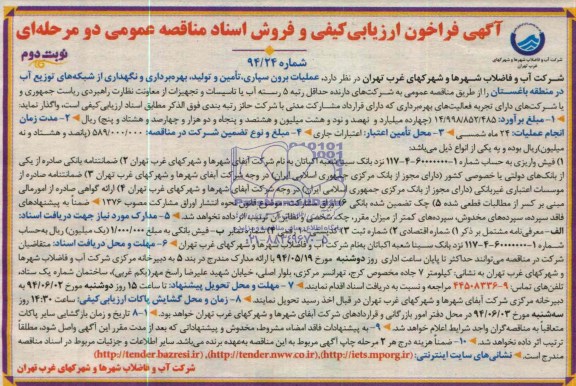 آگهی فراخون ارزیابی کیفی و فروش اسناد مناقصه عمومی دو مرحله‌ای
شماره ۹۴/۲۴
نوبت دوم
شرکت آب و فاضلاب شهرها و شهرکهای
غرب تهران
شرکت آب و فاضلاب شهرها و شهرکهای غرب تهران در نظر دارد، عملیات برون سپاری، تأمین و تولید، بهره‌برداری و نگهداری از شبکه‌های توزیع آب
در منطقه باغستان را از طریق مناقصه عمومی به شرکت‌های دارنده حداقل رتبه ۵ رسته آب یا تاسیسات و تجهیزات از معاونت نظارت راهبردی ریاست جمهوری و
یا شرکت‌های دارای تجربه فعالیت‌های بهره‌برداری که دارای قرارداد مشارکت مدنی با شرکت حائز رتبه بندی فوق الذکر مطابق اسناد ارزیابی کیفی است، واگذار نماید:
۱- مبلغ برآورد: ۱۴/۹۹۸/۸۵۲/۴۸۵ (چهارده میلیارد و نهصد و نود و هشت میلیون و هشتصد و پنجاه و دو هزار و چهارصد و هشتاد و پنج) ریال ۲- مدت زمان
انجام عملیات: ۲۴ ماه شمسی ۳- محل تأمین اعتبار: اعتبارات جاری ۴- مبلغ و نوع تضمین شرکت در مناقصه: ۵۸۹/۰۰۰/۰۰۰ (پانصد و هشتاد و نه
میلیون) ریال بوده و به یکی از انواع ذیل می‌باشد:
۱) فیش واریزی به حساب شماره ۱-۶۰۰۰۰۰۰-۴-۱۱۷ نزد بانک سینا شعبه اکباتان به نام شرکت آبفای شهرها و شهرکهای غرب تهران ۲) ضمانتنامه بانکی صادره از یکی
از بانک‌های دولتی یا خصوصی کشور (دارای مجوز از بانک مرکزی جمهوری اسلامی ایران) در وجه شرکت آبفای شهرها و شهرکهای غرب تهران ۳) ضمانتنامه صادره از
موسسات اعتباری غیربانکی (دارای مجوز از بانک مرکزی جمهوری اسلامی ایران) در وجه شرکت آبفای شهرها و شهرکهای غرب تهران ۴) گواهی صادره از امورمالی
مبنی بر کسر از مطالبات قطعی شده ۵) چک تضمین شده بانکی ۶) اوراق مشارکت موضوع قانون نحوه انتشار اوراق مشارکت مصوب ۱۳۷۶ – ضمناً به پیشنهادهای
فاقد سپرده، سپرده‌های مخدوش، سپرده‌های کمتر از میزان مقرر، چک شخصی و نظایر آن ترتیب اثر داده نخواهد شد. ۵- مدارک مورد نیاز جهت دریافت اسناد:
الف- معرفی‌نامه مشتمل بر ذکر ۱) شماره اقتصادی ۲) شماره ثبت ب- فیش بانکی به مبلغ ۱/۰۰۰/۰۰۰ (یک میلیون) ریال به‌حساب
شماره ۱-۶۰۰۰۰۰۰-۴-۱۱۷ نزد بانک سینا شعبه اکباتان به‌نام شرکت آب و فاضلاب شهرها و شهرکهای غرب تهران ۶- مهلت و محل دریافت اسناد: متقاضیان
شرکت در مناقصه می‌توانند حداکثر تا پایان ساعت اداری روز دوشنبه مورخ ۹۴/۰۵/۱۹ با ارائه مدارک مندرج در بند ۵ به دبیرخانه مرکزی شرکت آب و فاضلاب شهرها
و شهرکهای غرب تهران به نشانی: کیلومتر ۷ جاده مخصوص کرج، تهرانسر مرکزی، بلوار اصلی، خیابان شهید علیرضا راسخ مهر (یکم غربی)، ساختمان شماره یک ستاد،
تلفن‌های تماس: ۹-۴۴۵۰۸۳۳۶ مراجعه و نسبت به دریافت اسناد اقدام نمایند. ۷- مهلت و محل تحویل پیشنهاد: تا ساعت ۱۵ روز دوشنبه مورخ ۹۴/۰۶/۰۲ به
دبیرخانه مرکزی شرکت آبفای شهرها و شهرکهای غرب تهران در قبال اخذ رسید تحویل نمایند. ۸- زمان و محل گشایش پاکات ارزیابی کیفی: ساعت ۱۴:۳۰ روز
سه‌شنبه مورخ ۹۴/۰۶/۰۳ در محل دفتر امور بازرگانی و قراردادهای شرکت آبفای شهرها و شهرکهای غرب تهران خواهد بود. ۱-۸ تاریخ و زمان بازگشایی سایر پاکات
متعاقباً به مناقصه‌گران واجد شرایط اعلام خواهد شد. ۹- به پیشنهادات فاقد امضاء، مشروط، مخدوش و پیشنهاداتی که بعد از مدت مقرر این آگهی واصل شود، مطلقاً
ترتیب اثر داده نخواهد شد. ۱۰- ضمناً هزینه درج هر ۲ مرحله چاپ آگهی مربوط به این مناقصه به‌عهده برنده می‌باشد. سایر اطلاعات و جزئیات مربوط در اسناد مناقصه
مندرج است. نشانی‌های سایت اینترنتی: (http://iets.mporg.ir)، (http://tender.nww.co.ir)، (http://tender.bazresi.ir)
شرکت آب و فاضلاب شهرها و شهرکهای غرب تهران